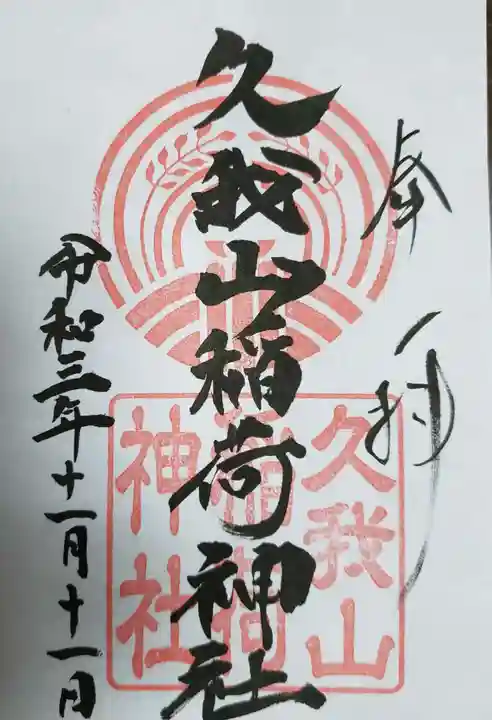 奉拝
久我山稲荷神社
令和三年十一月十一日
久我山
稲荷
神社